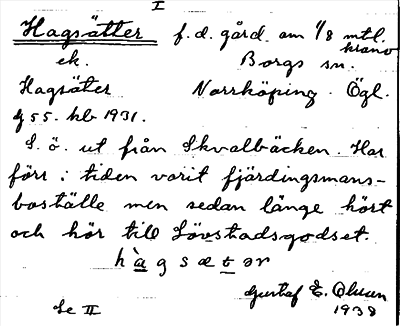 I
Hagsätter f.d. gård om 1/8 mtl.
krono
ek. Borgs sn.
Hagsäter Norrköping. Ögl.
g 55. hb 1931.
S. ö. ut från Skvalbäcken. Har
förr i tiden varit fjärdingsmans-
boställe men sedan länge hört
och hör till Lövstadsgodset.
hàgsætər
Gustaf E. Olsson
Se II 1938